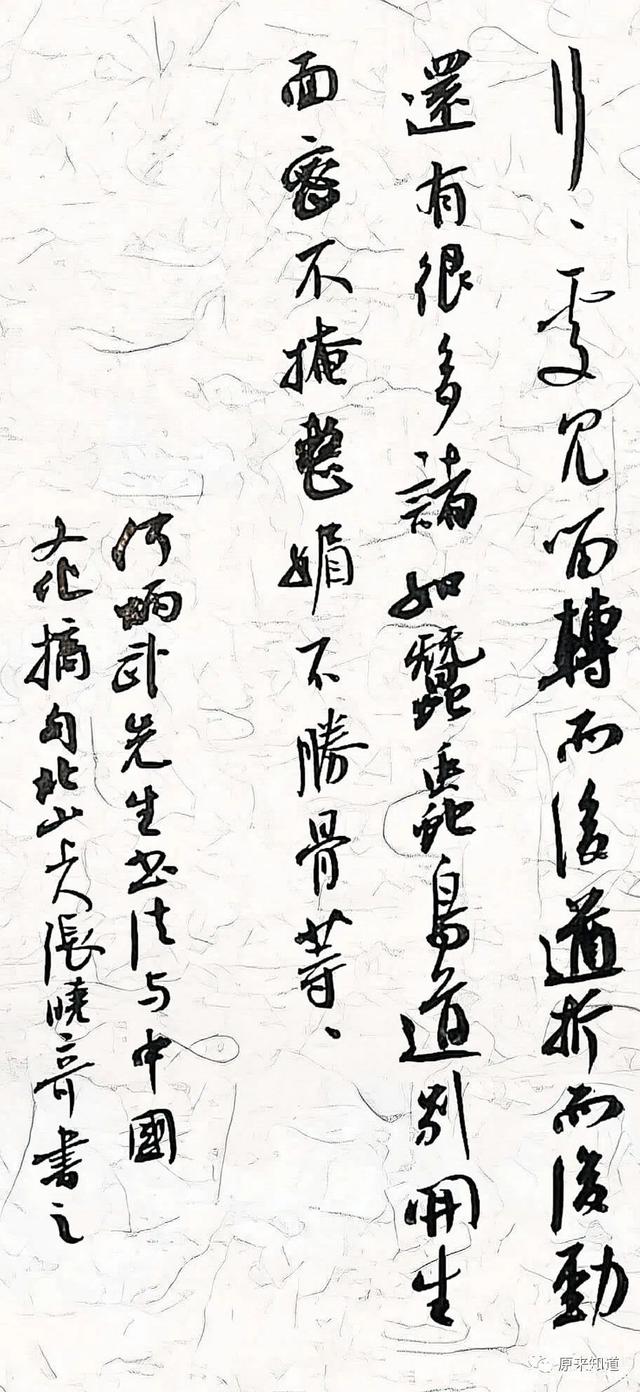 見而後遒折而後勁
還有很多諸如蠶鳥道別開生
面密不掩整媚不勝骨等、
何炳武先生书法与中國
文化摘句北山人張曉書之
原来知道